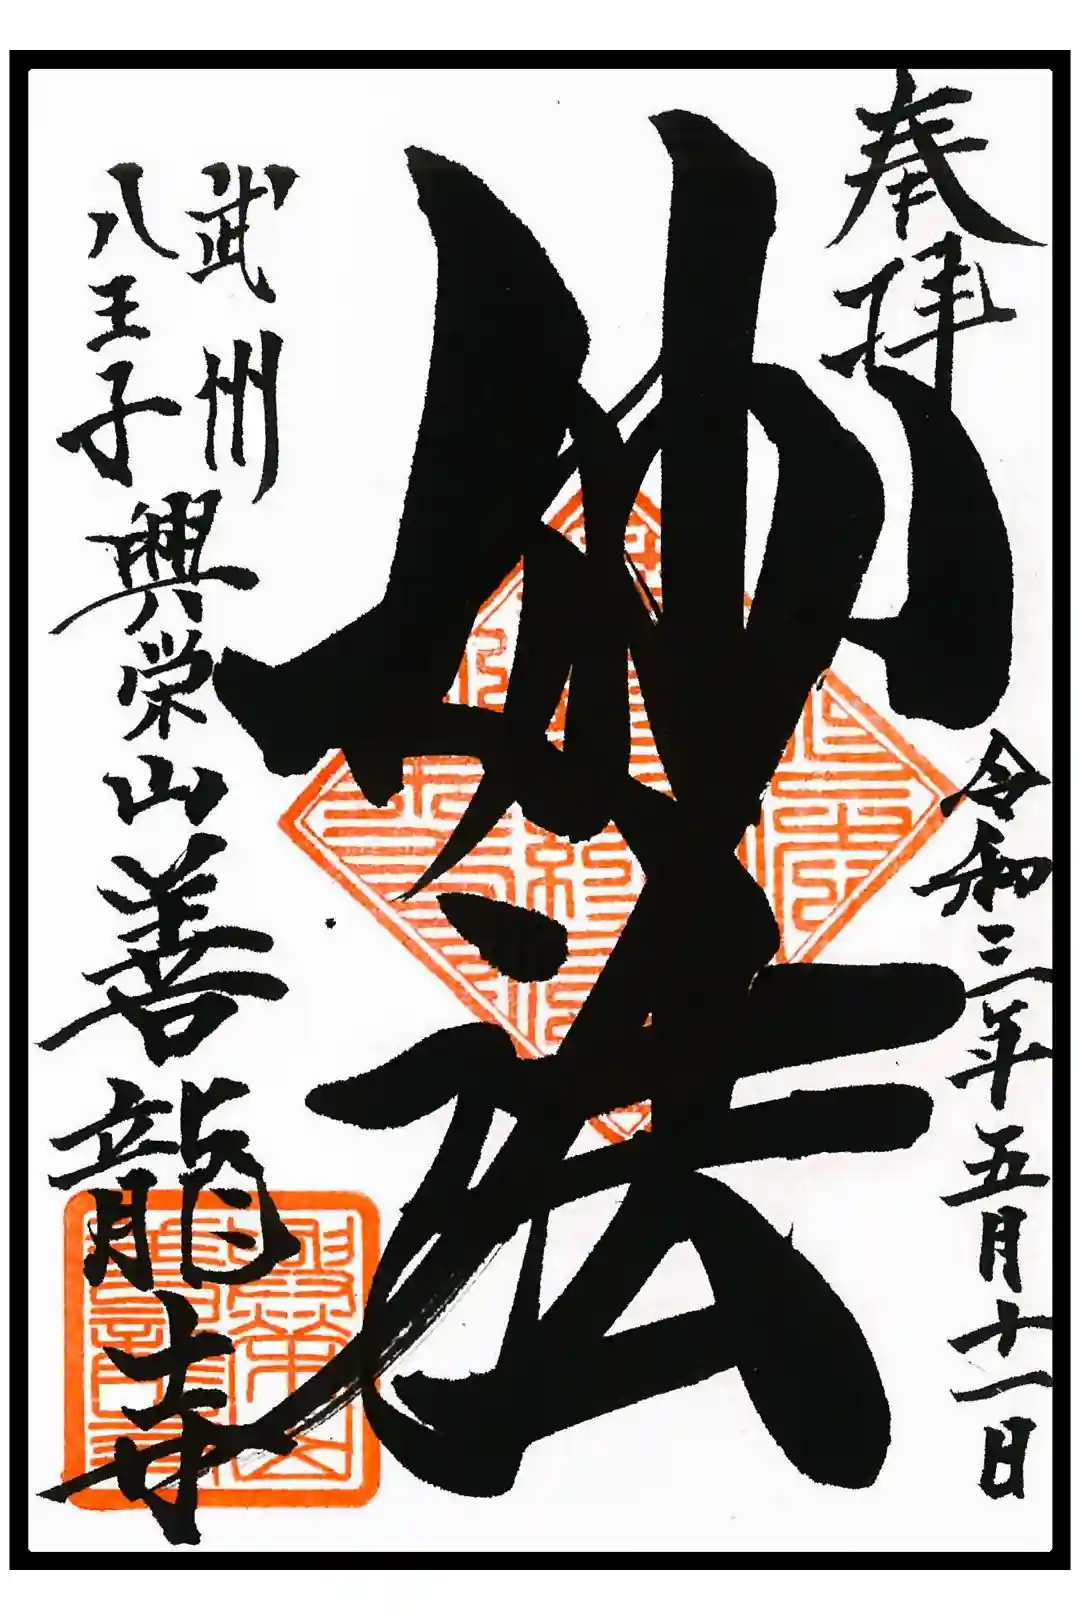 奉拝
令和三年五月十一日
妙法
武州
八王子 興栄山 善龍寺